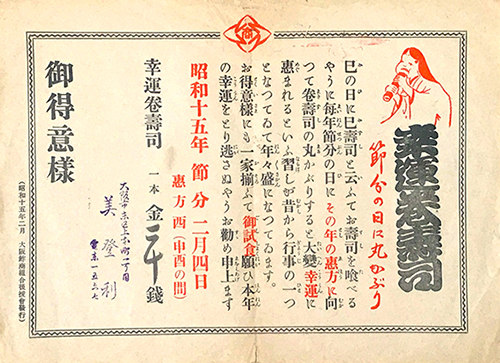 幸運巻壽司
節分の日に丸かぶり
巳の日に巳壽司と云ふてお壽司を喰べる
やうに毎年節分の日にその年の恵方に向
つて巻壽司の丸かぶりすると大變幸運に
恵まれるといふ習しが昔から行事の一つ
となつてゐて年々盛になつてゐます。
お得意様にも一家揃ふて御試食願ひ本年
の幸運をとり逃さぬやうお勧め申上ます
昭和十五年 節分 二月四日
恵方西(申酉の間)
幸運巻壽司 一本 金二十銭
美登利
御得意様
(昭和十五年二月 大阪鮓商組合後援會發行)